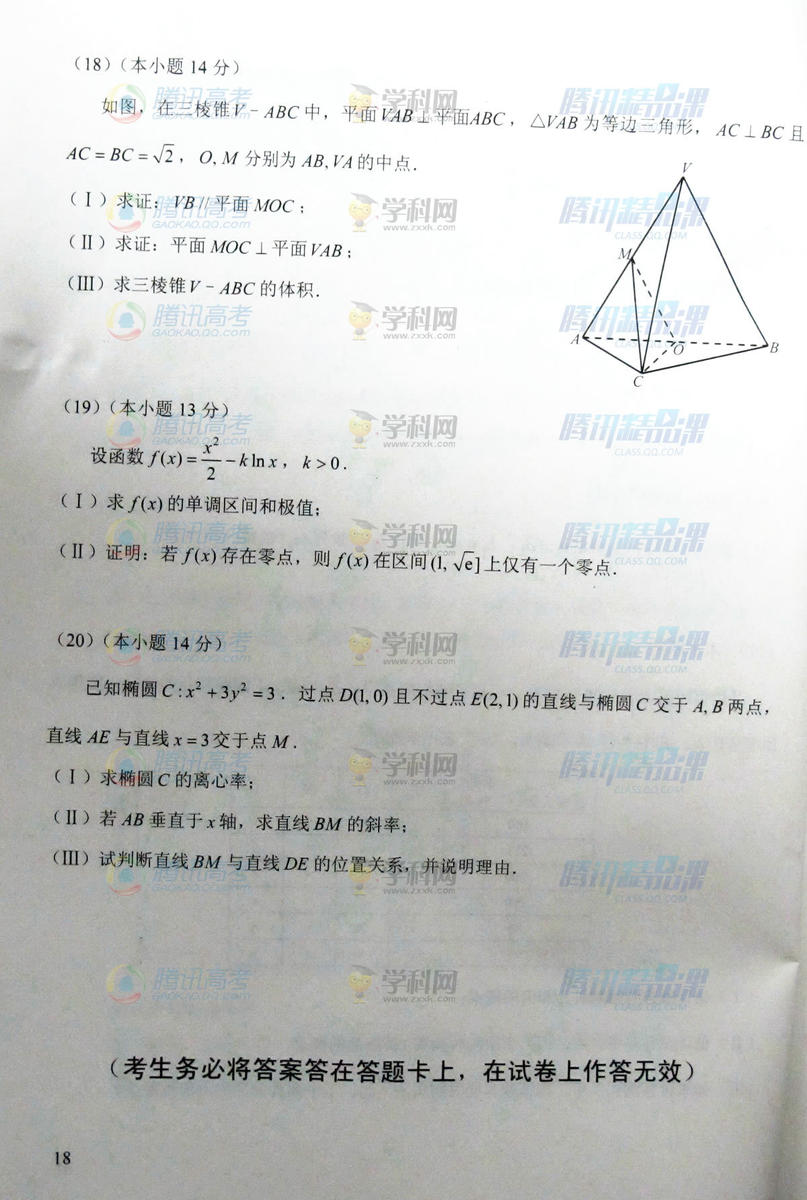 (18)(本小题 14 分)
如图,在三棱锥V－ABC 中,平面VAB⊥平面ABC,△VAB 为等边三角形,AC⊥BC 且
AC = BC = √2,O, M 分别为 AB, VA 的中点.
(Ⅰ)求证:VB // 平面 MOC;
(Ⅱ)求证:平面 MOC⊥平面VAB;
(Ⅲ)求三棱锥V－ABC 的体积.
V
M
A
O
B
C
(19)(本小题 13 分)
设函数 f(x) = x²/2 − k ln x,k > 0.
(Ⅰ)求 f(x) 的单调区间和极值;
(Ⅱ)证明:若 f(x) 存在零点,则 f(x) 在区间 (1, √e] 上仅有一个零点.
(20)(本小题 14 分)
已知椭圆 C : x² + 3y² = 3.过点 D(1, 0) 且不过点 E(2, 1) 的直线与椭圆 C 交于 A, B 两点,
直线 AE 与直线 x = 3 交于点 M.
(Ⅰ)求椭圆 C 的离心率;
(Ⅱ)若 AB 垂直于 x 轴,求直线 BM 的斜率;
(Ⅲ)试判断直线 BM 与直线 DE 的位置关系,并说明理由.
(考生务必将答案答在答题卡上,在试卷上作答无效)
18
腾讯高考
GAOKAO.QQ.COM
学科网
www.zxxk.com
腾讯精品课
CLASS.QQ.COM